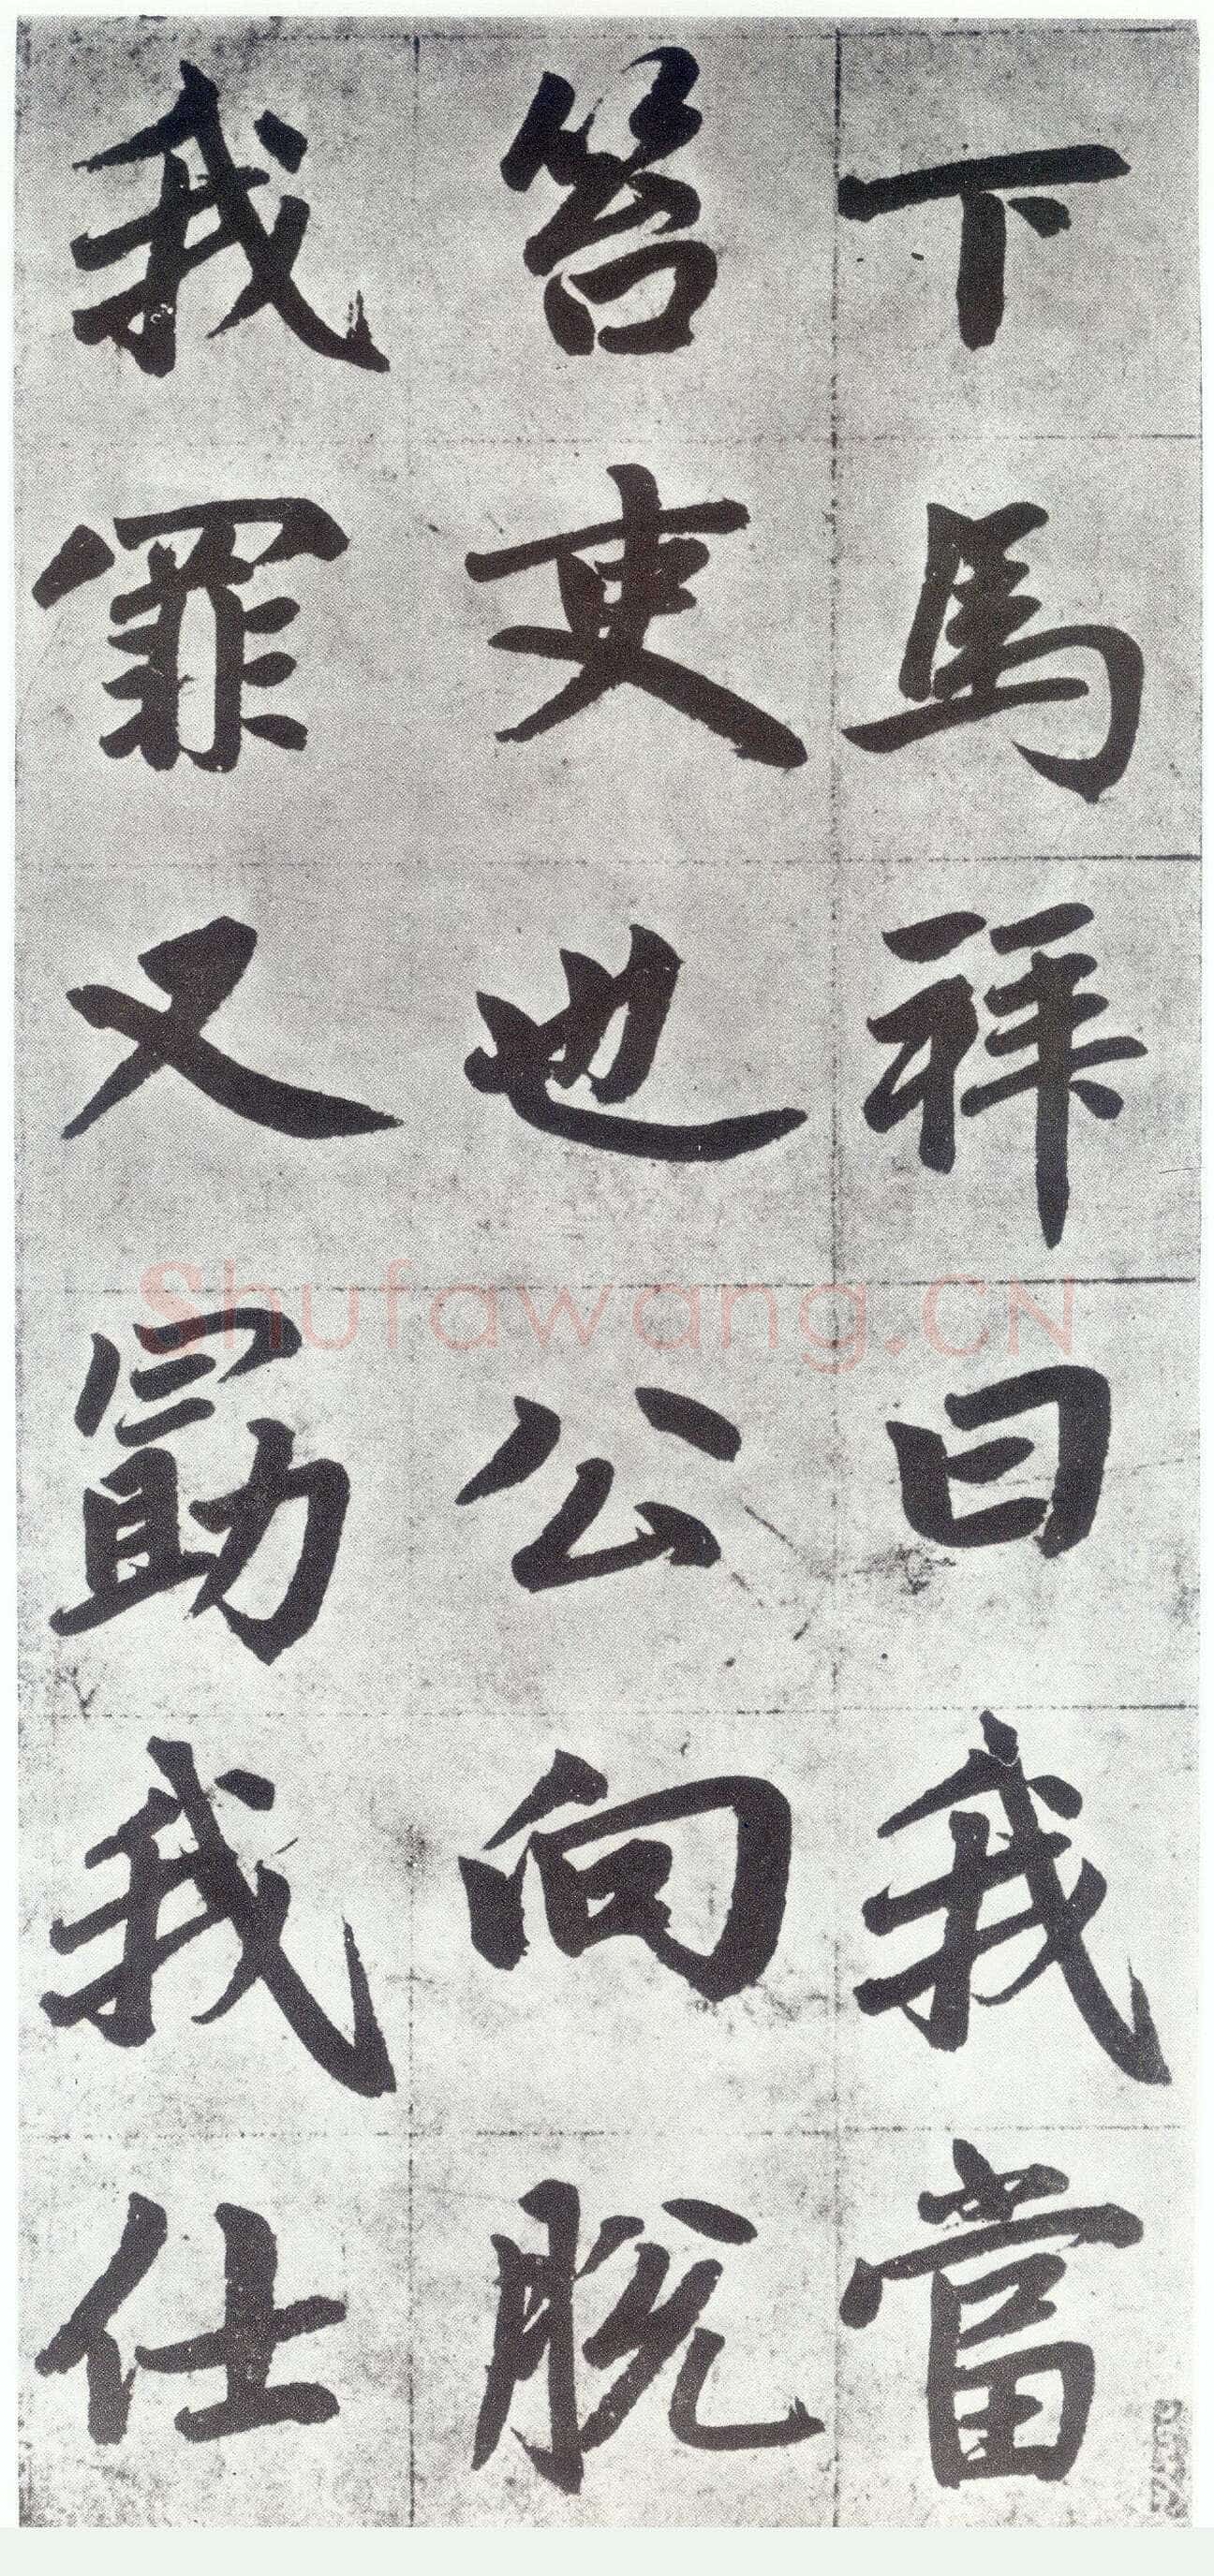 下馬拜曰我當
笞吏也公向脫
我罪又勗我仕
Shufawang.CN